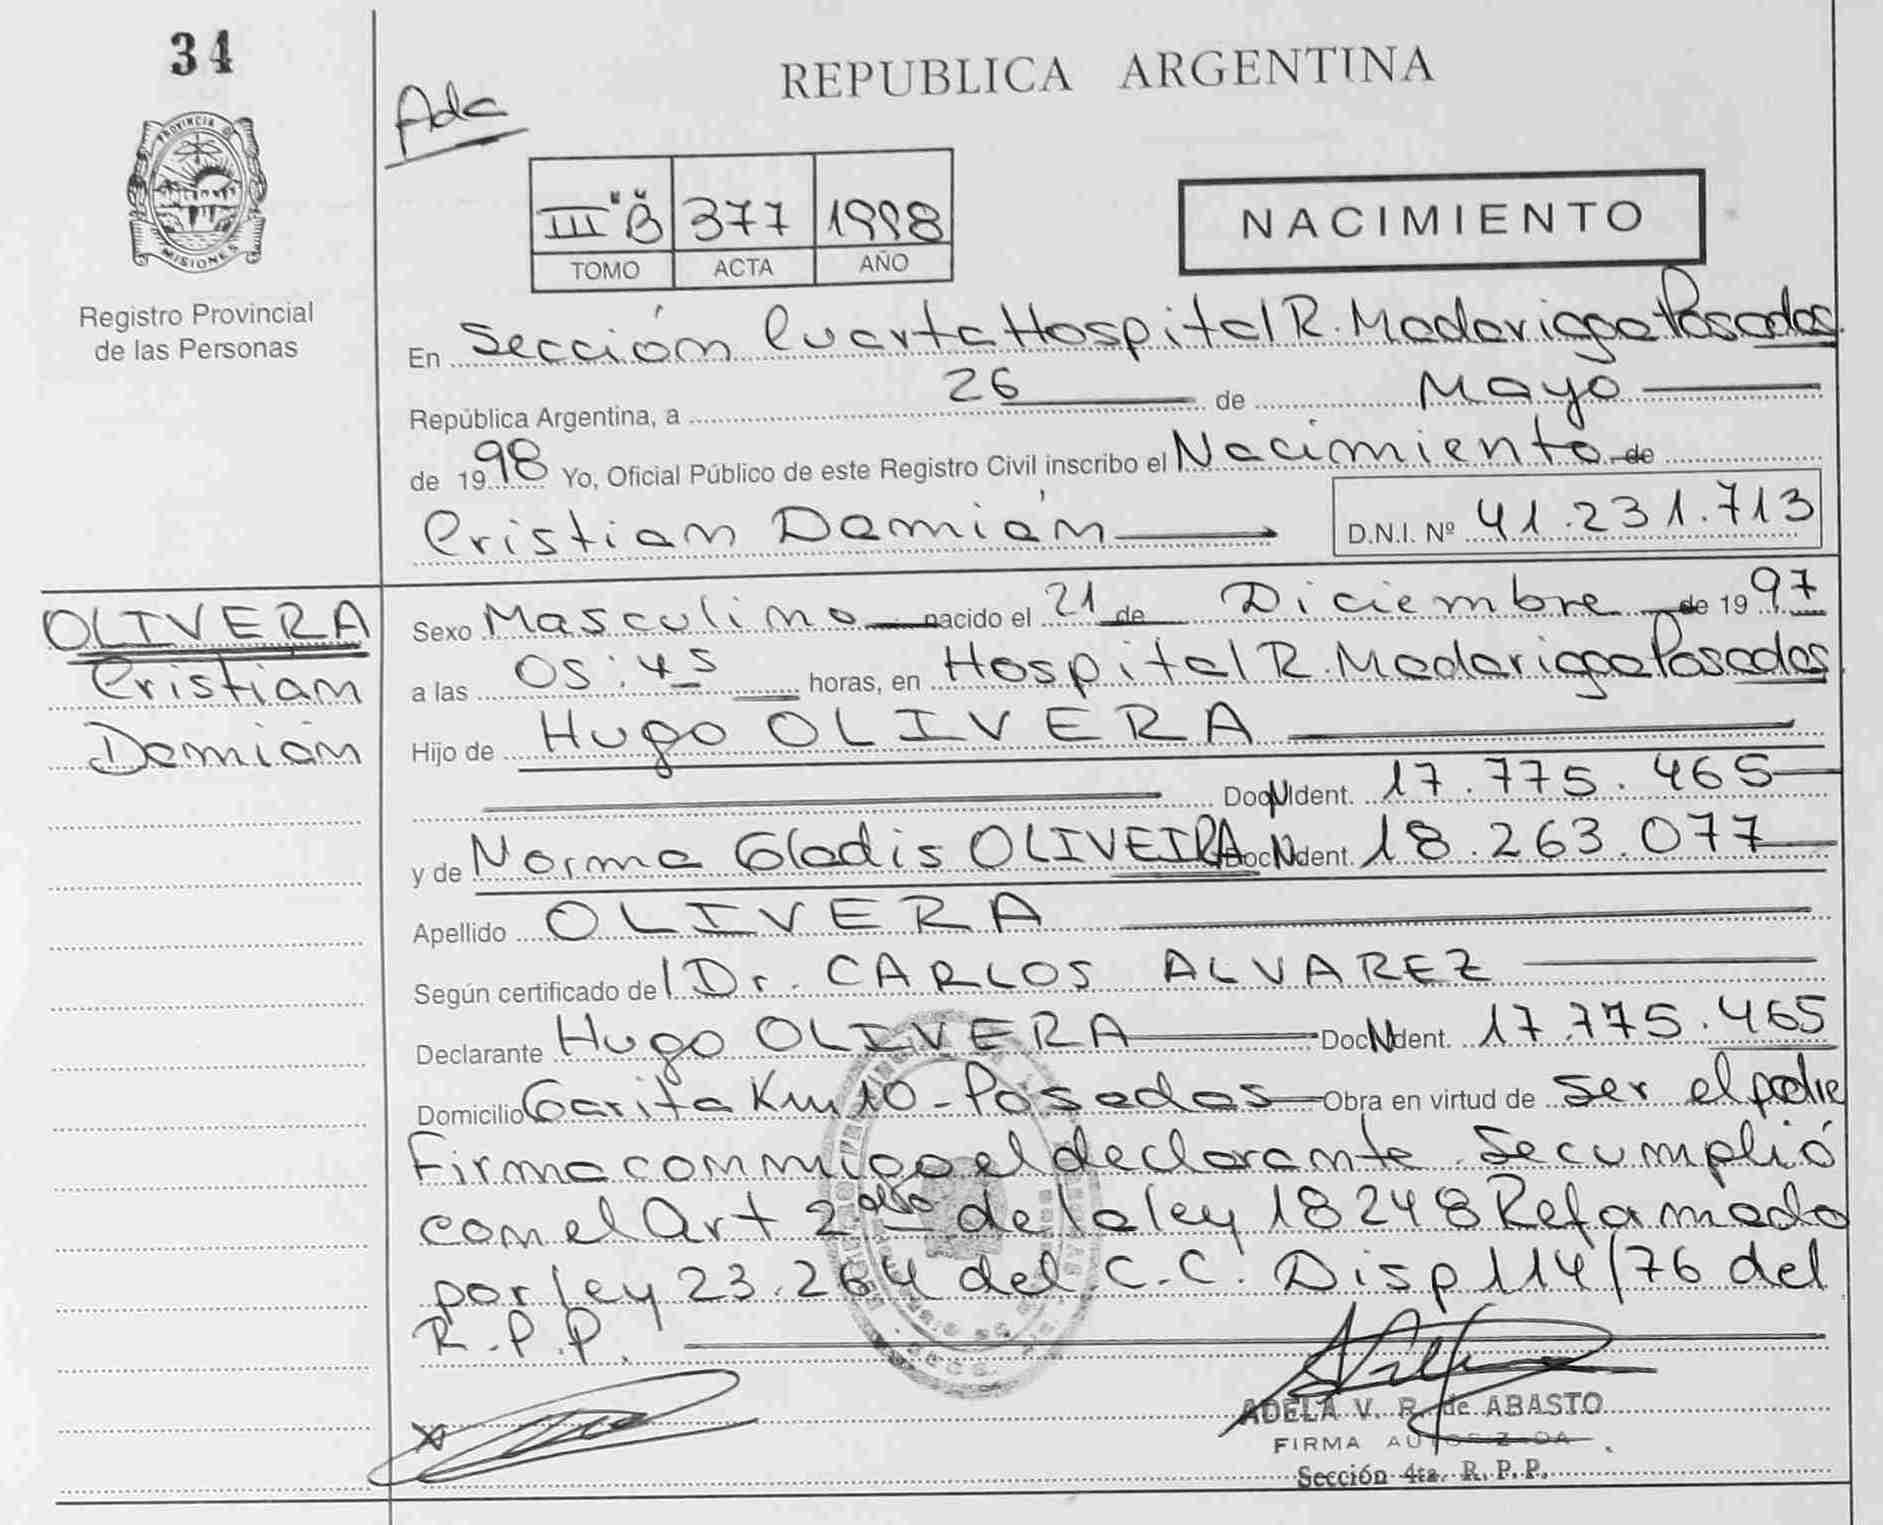 34
PROVINCIA D
MISIONES
Registro Provincial
de las Personas
Ada
REPUBLICA ARGENTINA
III "B" 377 1998
TOMO ACTA AÑO
NACIMIENTO
En Sección Cuarta Hospital R. Madariaga Posadas
República Argentina, a 26 de Mayo
de 1998 Yo, Oficial Público de este Registro Civil inscribo el Nacimiento de
Cristian Damián D.N.I. Nº 41.231.713
OLIVERA
Cristian
Damián
Sexo Masculino nacido el 21 de Diciembre de 1997
a las 05:45 horas, en Hospital R. Madariaga Posadas
Hijo de Hugo OLIVERA
Doc N Ident. 17.775.465
y de Norma Gladis OLIVEIRA Doc N Ident. 18.263.077
Apellido OLIVERA
Según certificado del Dr. CARLOS ALVAREZ
Declarante Hugo OLIVERA Doc N Ident. 17.775.465
Domicilio Garita Km 10 - Posadas Obra en virtud de ser el padre
Firma conmigo el declarante. Se cumplió
con el Art 2do de la ley 18248 Refamado
por ley 23.264 del C.C. Disp 114/76 del
R.P.P.
X
ADELA V. R. de ABASTO
FIRMA AUTORIZADA
Sección 4ta. R. P. P.